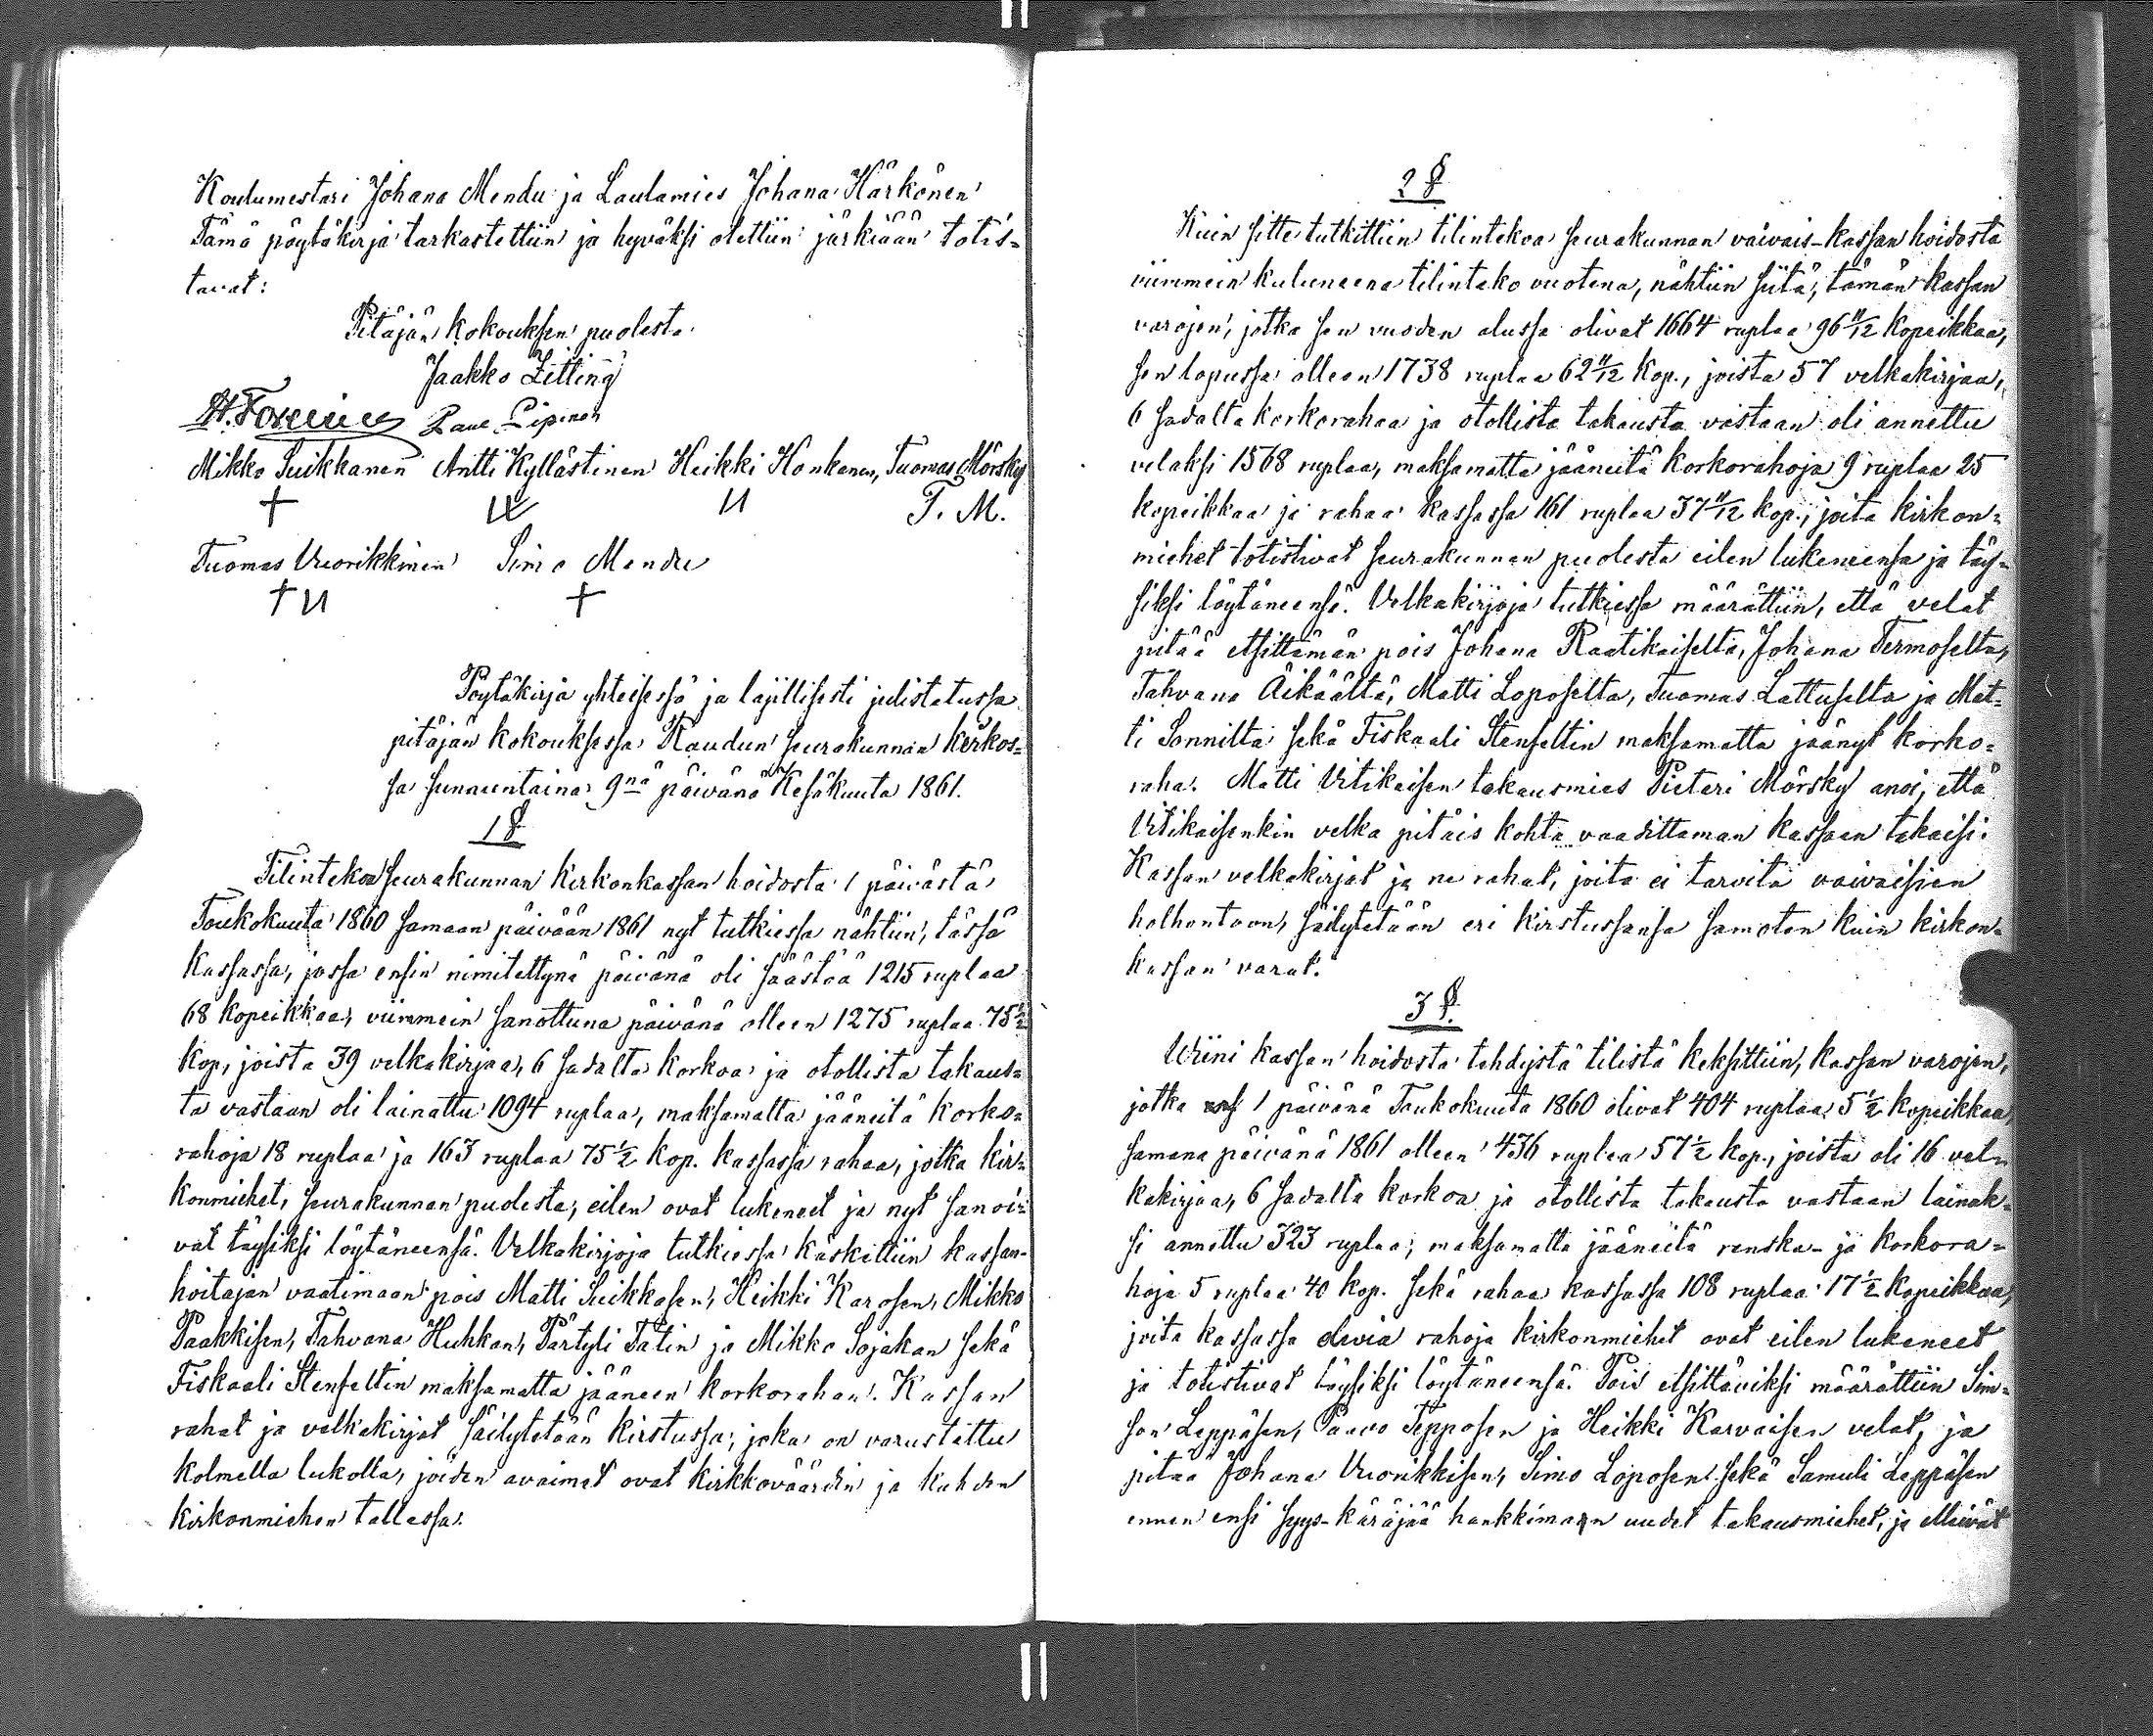 Koulumestari Johana Mendu ja Laulamies Johana Härkönen
Tämä pöytäkirja tarkastettiin ja hyväksi otettiin järkiään totis=
tavat:
Pitäjän kokouksen puolesta
Jaakko Zitting
Paul Pipinen
Mikko Suikkanen Antti Kyllästinen Heikki Honkanen, Tuomas Mörsky
T. M.
Tuomas Vuorikkinen Simo Mendu
Pöytäkirja yhteisessä ja lajillisesti julistetussa
pitäjän kokouksessa Raudun seurakunnan kirkos=
sa sunnuntaina 9nä päivänä Kesäkuuta 1861.
1 §
Tilintekoa seurakunnan kirkonkassan hoidosta 1 päivästä
Toukokuuta 1860 samaan päivään 1861 nyt tutkiessa nähtiin, tässä
kassassa, jossa ensin nimitettynä päivänä oli säästöä 1215 ruplaa
68 kopeikkaa, viimmein sanottuna päivänä olleen 1275 ruplaa 75 1/2
kop, joista 39 velkakirjaa, 6 sadalta korkoa ja otollista takaus=
ta vastaan oli lainattu 1094 ruplaa, maksamatta jääneitä korko=
rahoja 18 ruplaa ja 163 ruplaa 75 1/2 kop. kassassa rahaa, jotka kir=
konmiehet, seurakunnan puolesta, eilen ovat lukeneet ja nyt sanoi=
vat täysiksi löytäneensä. Velkakirjoja tutkiessa käskettiin kassan-
hoitajan vaatimaan pois Matti Suikkasen, Heikki Karosen, Mikko
Paakkisen, Tahvana Huhkan, Pärtyli Tatin ja Mikko Sojakan sekä
Fiskaali Stenfeltin maksamatta jääneen korkorahan. Kassan
rahat ja velkakirjat säilytetään kirstussa, joka on varustettu
kolmella lukolla, joiden avaimet ovat kirkkoväärdin ja kahden
kirkonmiehen tallessa.
2 §
Kuin sitte tutkittiin tilintekoa seurakunnan vaivais-kassan hoidosta
viimmein kuluneena tilinteko vuotena, nähtiin siitä, tämän kassan
varojen, jotka sen vuoden alussa olivat 1664 ruplaa 96 11/12 kopeikkaa,
sen lopussa olleen 1738 ruplaa 62 11/12 kop., joista 57 velkakirjaa,
6 sadalta korkorahaa ja otollista takausta vastaan oli annettu
velaksi 1568 ruplaa, maksamatta jääneitä korkorahoja 9 ruplaa 25
kopeikkaa ja rahaa kassassa 161 ruplaa 37 11/12 kop., joita kirkon=
miehet totistivat seurakunnan puolesta eilen lukeneensa ja täy=
siksi löytäneensä. Velkakirjoja tutkiessa määrättiin, että velat
pitää etsittämän pois Johana Raatikaiselta, Johana Termoselta,
Tahvana Äikäältä, Matti Loposelta, Tuomas Lattuselta ja Mat=
ti Sonnilta sekä Fiskaali Stenfeltin maksamatta jäänyt korko=
raha. Matti Vitikaisen takausmies Pietari Mörsky anoi, että
Vitikaisenkin velka pitäis kohta vaadittaman kassaan takaisi.
Kassan velkakirjat ja ne rahat, joita ei tarvita vaivaisien
holhontoon, säilytetään eri kirstussansa samoten kuin kirkon=
kassan varat.
3 §.
Wiini kassan hoidosta tehdystä tilistä keksittiin, kassan varojen,
jotka 1 päivänä Toukokuuta 1860 olivat 404 ruplaa 5 1/2 kopeikkaa,
samana päivänä 1861 olleen 436 ruplaa 57 1/2 kop., joista oli 16 vel=
kakirjaa, 6 sadalta korkoa ja otollista takausta vastaan lainak=
si annettu 323 ruplaa; maksamatta jääneitä renska- ja korkora=
hoja 5 ruplaa 40 kop. sekä rahaa kassassa 108 ruplaa 17 1/2 kopeikkaa,
joita kassassa olevia rahoja kirkonmiehet ovat eilen lukeneet
ja totistivat täysiksi löytäneensä. Pois etsittäviksi määrättiin Sim=
son Leppäsen, Paavo Tepposen ja Heikki Karvaisen velat, ja
pitää Johana Vuorikkisen, Simo Loposen sekä Samuli Leppäsen
ennen ensi syys-käräjää hankkimaan uudet takausmiehet, ja elleivät